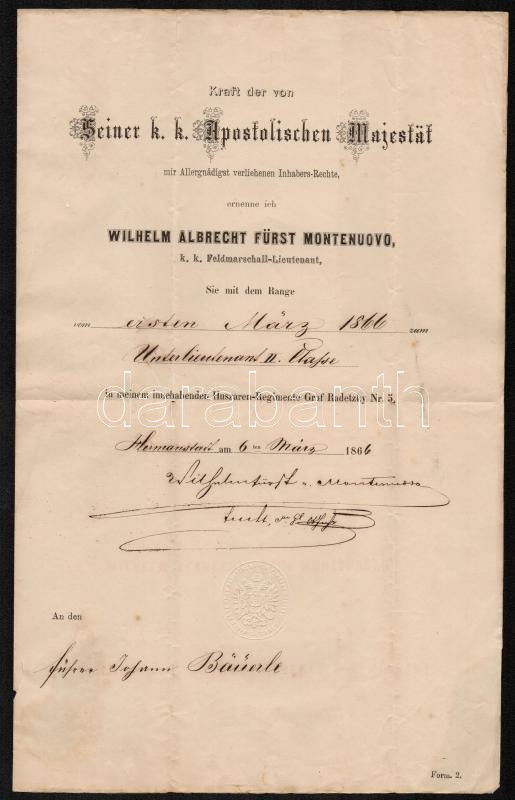 Kraft der von
Seiner k. k. Apostolischen Majestät
mir Allergnädigst verliehenen Inhabers-Rechte,
ernenne ich
WILHELM ALBRECHT FÜRST MONTENUOVO,
k. k. Feldmarschall-Lieutenant,
Sie mit dem Range
vom ersten März 1866 zum
Unterlieutenant II. Classe
in meinem innehabenden Husvaren-Regimente Graf Radetzky Nr. 5,
darabanth
Hermanstadt am 6ten März 1866
Wilhelm Fürst v. Montenuovo
An den
Führer Johann Bäuerle
Form. 2.